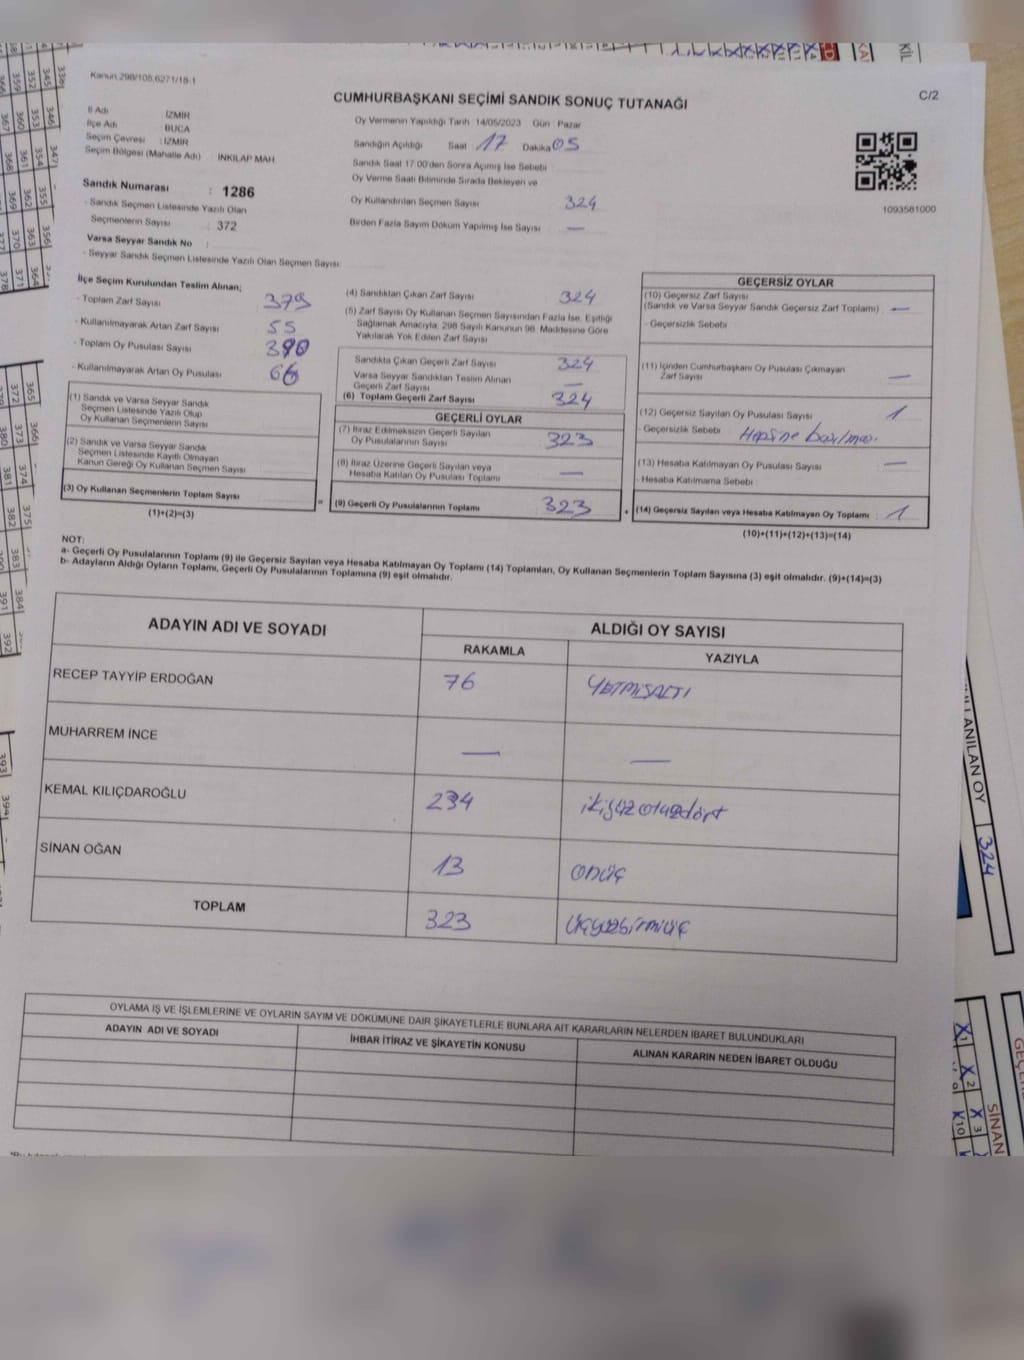 Kanun.298/105,6271/18-1
C/2
CUMHURBAŞKANI SEÇİMİ SANDIK SONUÇ TUTANAĞI
İl Adı İZMİR
İlçe Adı BUCA
Seçim Çevresi : İZMİR
Seçim Bölgesi (Mahalle Adı) İNKILAP MAH.
Sandık Numarası : 1286
- Sandık Seçmen Listesinde Yazılı Olan
Seçmenlerin Sayısı : 372
Varsa Seyyar Sandık No :
- Seyyar Sandık Seçmen Listesinde Yazılı Olan Seçmen Sayısı:
Oy Vermenin Yapıldığı Tarih :14/05/2023 Gün : Pazar
Sandığın Açıldığı Saat 17 Dakika 05
Sandık Saat 17:00'den Sonra Açımış İse Sebebi :
Oy Verme Saati Bitiminde Sırada Bekleyen ve
Oy Kullandırılan Seçmen Sayısı 324
Birden Fazla Sayım Döküm Yapılmış İse Sayısı —
1093581000
İlçe Seçim Kurulundan Teslim Alınan;
- Toplam Zarf Sayısı 379
- Kullanılmayarak Artan Zarf Sayısı 55
- Toplam Oy Pusulası Sayısı 390
- Kullanılmayarak Artan Oy Pusulası 66
(1) Sandık ve Varsa Seyyar Sandık
Seçmen Listesinde Yazılı Olup
Oy Kullanan Seçmenlerin Sayısı
(2) Sandık ve Varsa Seyyar Sandık
Seçmen Listesinde Kayıtlı Olmayan
Kanun Gereği Oy Kullanan Seçmen Sayısı
(3) Oy Kullanan Seçmenlerin Toplam Sayısı
(1)+(2)=(3)
(4) Sandıktan Çıkan Zarf Sayısı 324
(5) Zarf Sayısı Oy Kullanan Seçmen Sayısından Fazla İse, Eşitliği
Sağlamak Amacıyla, 298 Sayılı Kanunun 98. Maddesine Göre
Yakılarak Yok Edilen Zarf Sayısı
Sandıkta Çıkan Geçerli Zarf Sayısı 324
Varsa Seyyar Sandıktan Teslim Alınan
Geçerli Zarf Sayısı —
(6) Toplam Geçerli Zarf Sayısı 324
GEÇERLİ OYLAR
(7) İtiraz Edilmeksizin Geçerli Sayılan
Oy Pusulalarının Sayısı 323
(8) İtiraz Üzerine Geçerli Sayılan veya
Hesaba Katılan Oy Pusulası Toplamı —
= (9) Geçerli Oy Pusulalarının Toplamı 323
GEÇERSİZ OYLAR
(10) Geçersiz Zarf Sayısı
(Sandık ve Varsa Seyyar Sandık Geçersiz Zarf Toplamı) —
- Geçersizlik Sebebi
(11) İçinden Cumhurbaşkanı Oy Pusulası Çıkmayan
Zarf Sayısı —
(12) Geçersiz Sayılan Oy Pusulası Sayısı 1
- Geçersizlik Sebebi Hepsine basılması.
(13) Hesaba Katılmayan Oy Pusulası Sayısı —
- Hesaba Katılmama Sebebi
+ (14) Geçersiz Sayılan veya Hesaba Katılmayan Oy Toplamı 1
(10)+(11)+(12)+(13)=(14)
NOT:
a- Geçerli Oy Pusulalarının Toplamı (9) ile Geçersiz Sayılan veya Hesaba Katılmayan Oy Toplamı (14) Toplamları, Oy Kullanan Seçmenlerin Toplam Sayısına (3) eşit olmalıdır. (9)+(14)=(3)
b- Adayların Aldığı Oyların Toplamı, Geçerli Oy Pusulalarının Toplamına (9) eşit olmalıdır.
ADAYIN ADI VE SOYADI ALDIĞI OY SAYISI
RAKAMLA YAZIYLA
RECEP TAYYİP ERDOĞAN 76 YETMİŞALTI
MUHARREM İNCE — —
KEMAL KILIÇDAROĞLU 234 ikiyüzotuzdört
SİNAN OĞAN 13 onüç
TOPLAM 323 üçyüzbirmiüç
OYLAMA İŞ VE İŞLEMLERİNE VE OYLARIN SAYIM VE DÖKÜMÜNE DAİR ŞİKAYETLERLE BUNLARA AİT KARARLARIN NELERDEN İBARET BULUNDUKLARI
ADAYIN ADI VE SOYADI İHBAR İTİRAZ VE ŞİKAYETİN KONUSU ALINAN KARARIN NEDEN İBARET OLDUĞU
324
SİNAN